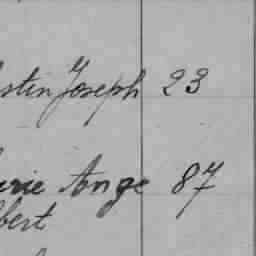 stin Joseph 23
rie Ange 87
bert